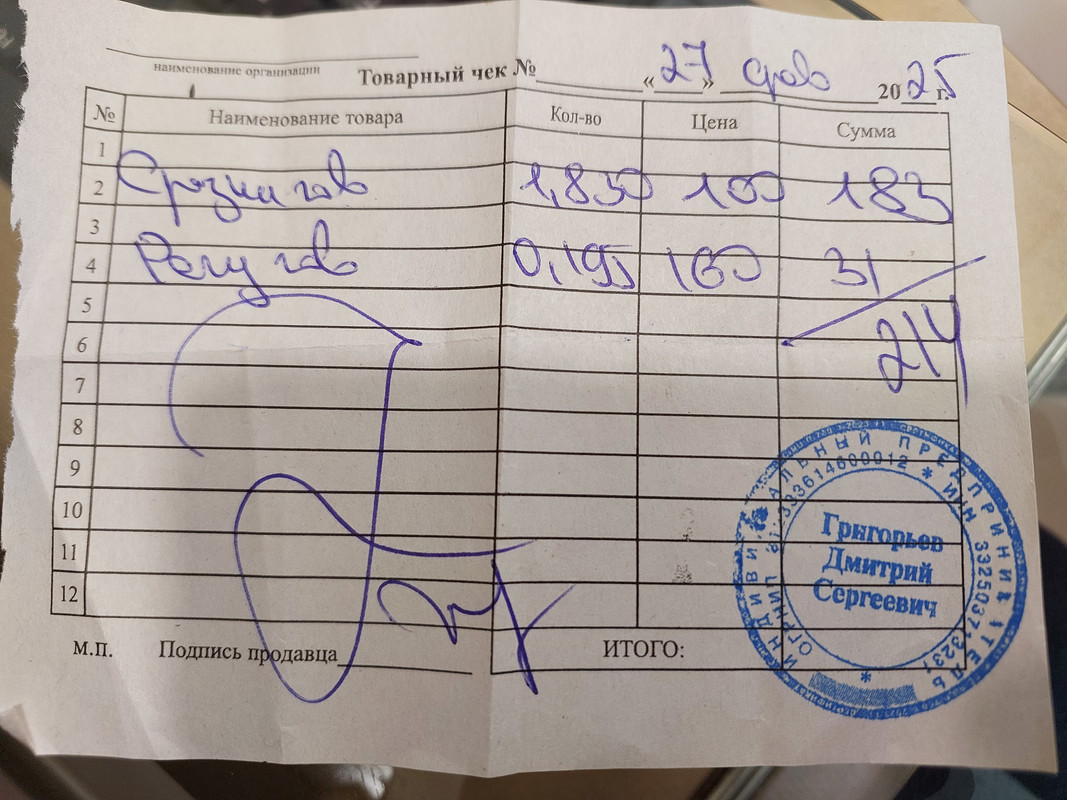 наименование организации
Товарный чек № «27» фев 2025г.
№ Наименование товара Кол-во Цена Сумма
1
2 1,830 100 183
3
4 0,195 160 31
5
214
6
7
8
9
10
11
12
М.П. Подпись продавца ИТОГО:
ИНДИВИДУАЛЬНЫЙ ПРЕДПРИНИМАТЕЛЬ
ИНН 332503713231
Григорьев
Дмитрий
Сергеевич